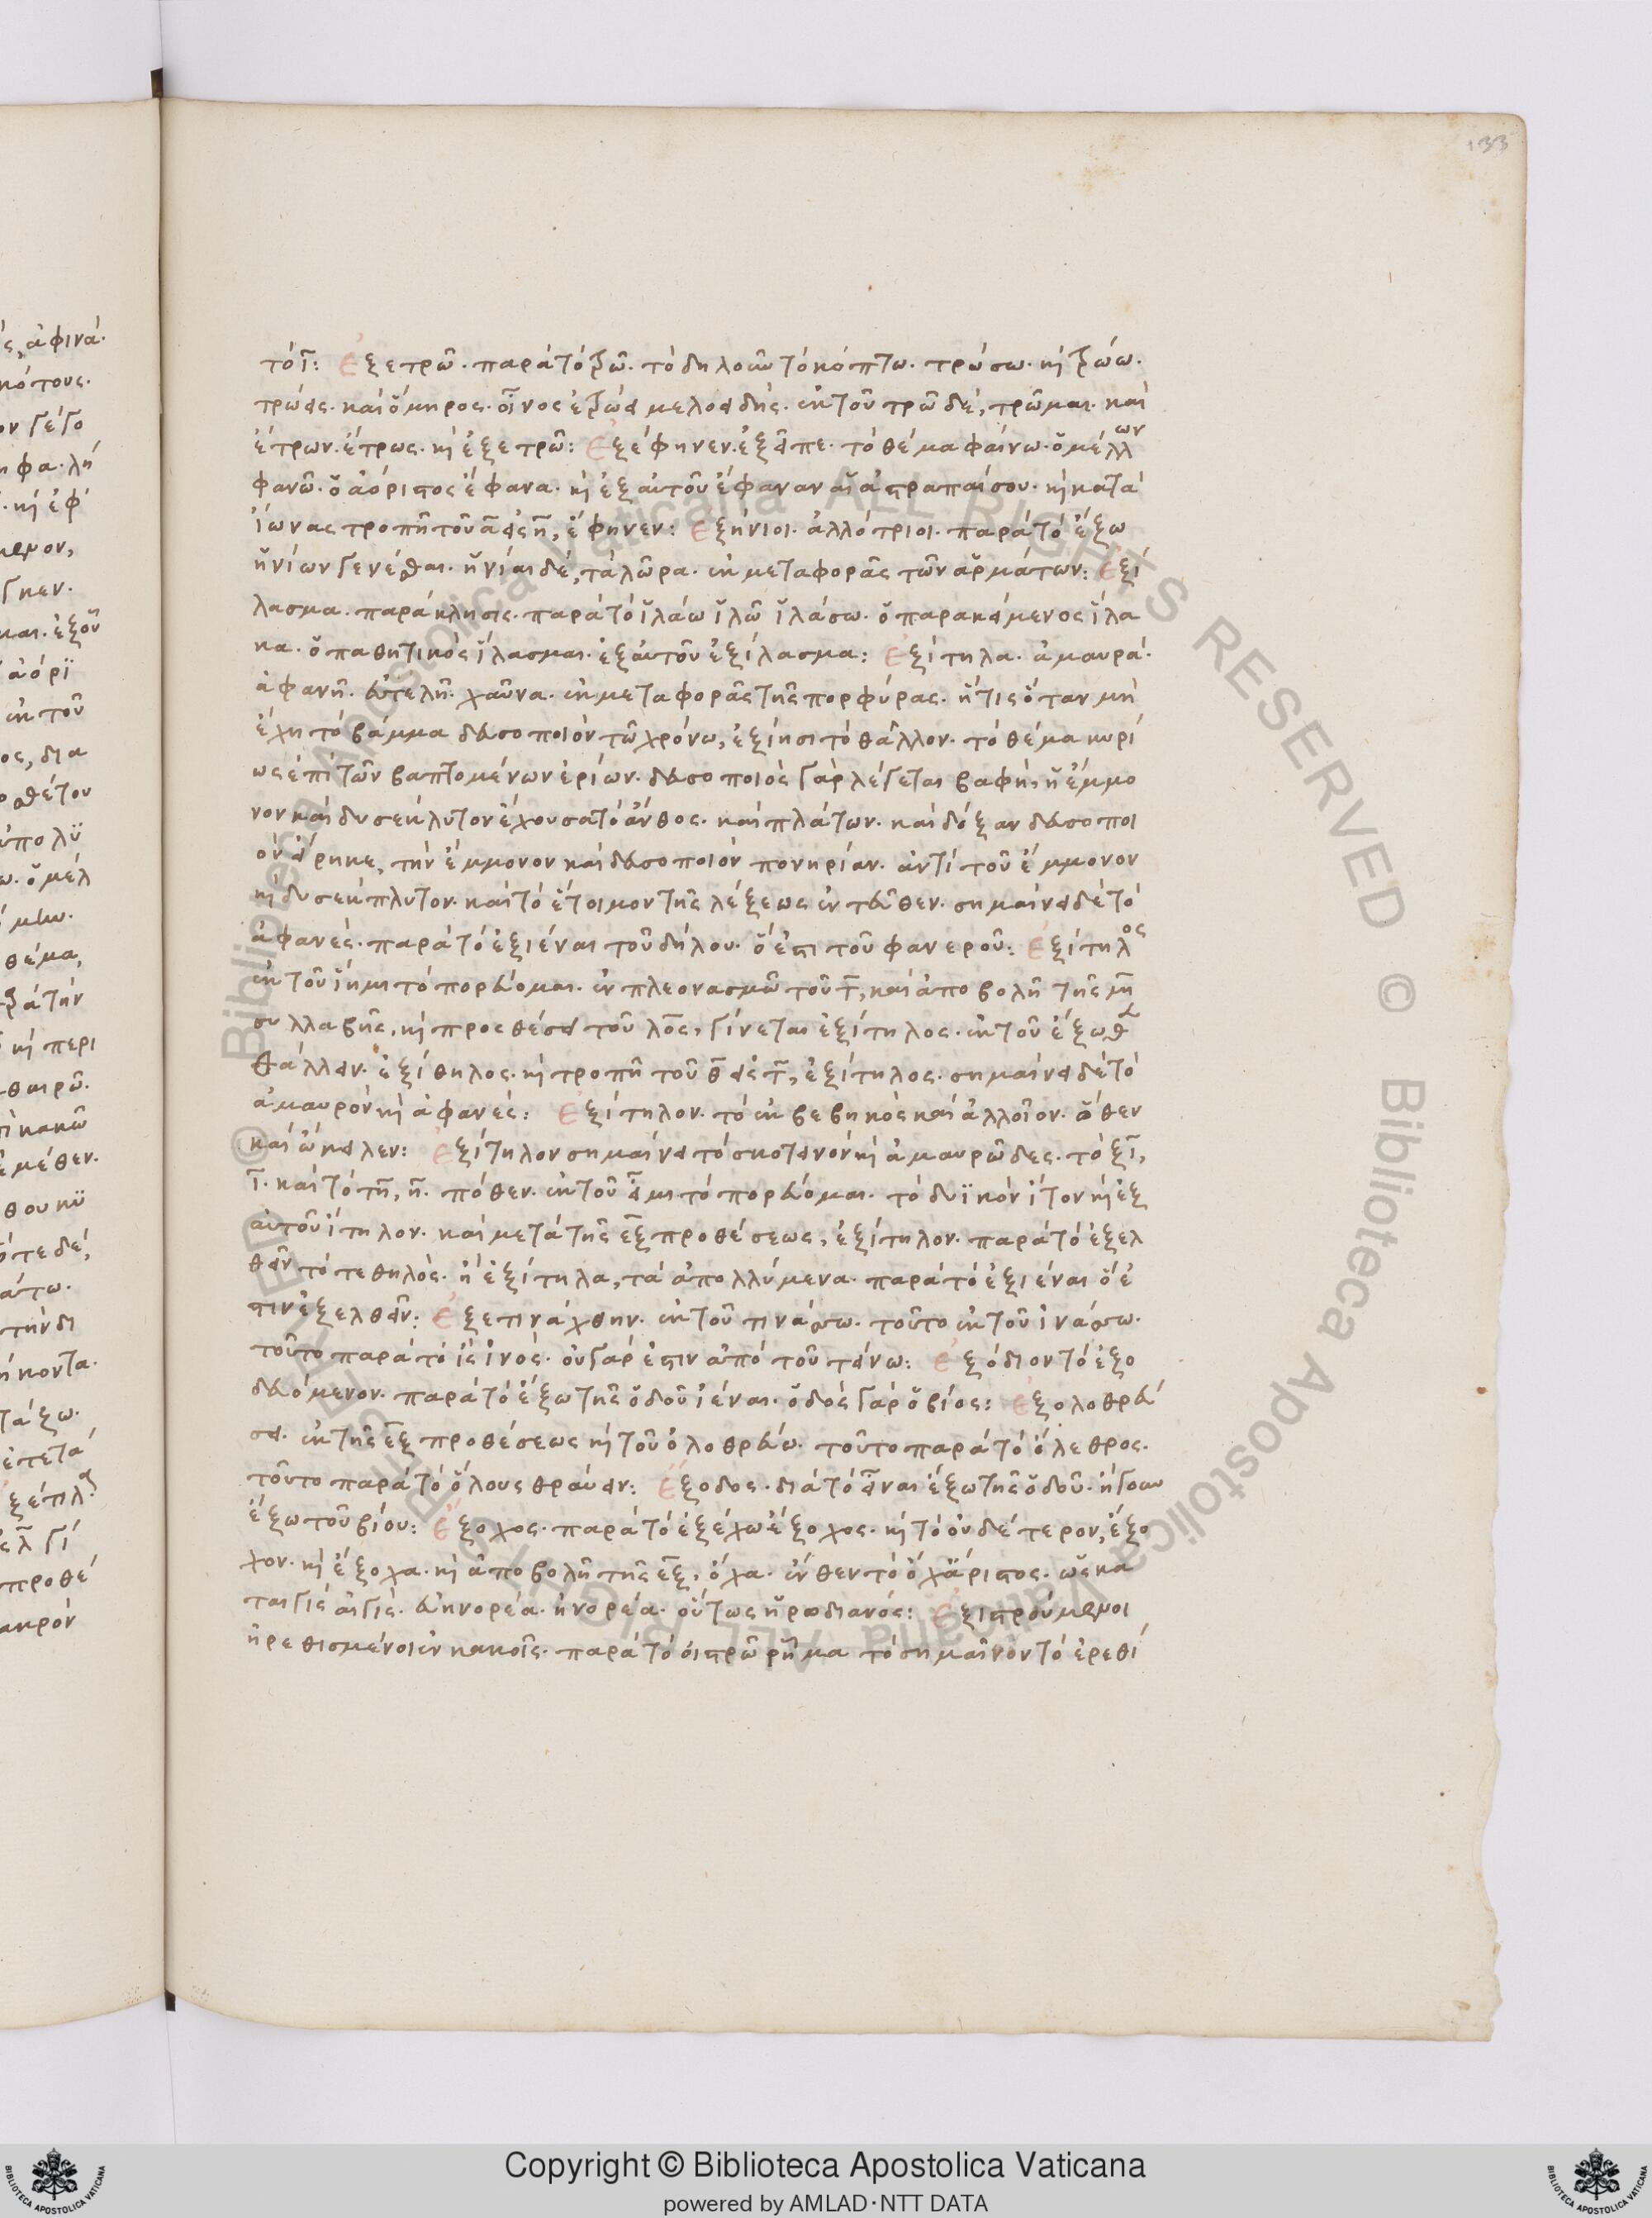 133
τὸ ῑ: Ἐξετρῶ. παρὰ τὸ τρῶ. τὸ δηλοῦν τὸ κόπτω. τρώσω. κὶ τρώω.
τρώεις. καὶ ὅμηρος. οἶνος ἐτρώει μελοειδής. ἐκ τοῦ τρῶ δὲ, τρῶμαι. καὶ
ἔτρων. ἔτρως. κὶ ἐξετρῶ: Ἐξέφηνεν. ἐξεῖπε. τὸ θέμα φαίνω. ὁ μέλλων
φανῶ. ὁ ἀόριστος ἔφανα. κὶ ἐξ αὐτοῦ ἔφαναν αἱ ἀστραπαί σου. κὶ κατὰ
ἴωνας τροπῆ τοῦ α εἰς η, ἔφηνεν: Ἐξήνιοι. ἀλλότριοι. παρὰ τὸ ἔξω
ἡνίων γενέσθαι. ἡνίαι δὲ, τὰ λῶρα. ἐκ μεταφορᾶς τῶν ἁρμάτων: Ἐξί
λασμα. παράκλησις. παρὰ τὸ ἱλάω ἱλῶ ἱλάσω. ὁ παρακείμενος ἵλα
κα. ὁ παθητικὸς ἵλασμαι. ἐξ αὐτοῦ ἐξίλασμα: Ἐξίτηλα. ἀμαυρά.
ἀφανῆ. εὐτελῆ. χαῦνα. ἐκ μεταφορᾶς τῆς πορφύρας. ἥτις ὅταν μὴ
ἔχη τὸ βάμμα δευσοποιὸν τῶ χρόνω, ἐξίησι τὸ θάλλον. τὸ θέμα κυρί
ως ἐπὶ τῶν βαπτομένων ἐρίων. δευσοποιὸς γὰρ λέγεται βαφὴ, ἡ ἔμμο
νον καὶ δυσέκλυτον ἔχουσα τὸ ἄνθος. καὶ πλάτων. καὶ δόξαν δευσοποι
ὸν εἴρηκε, τὴν ἔμμονον καὶ δευσοποιὸν πονηρίαν. ἀντὶ τοῦ ἔμμονον
κὶ δυσέκπλυτον. καὶ τὸ ἔτοιμον τῆς λέξεως ἐντεῦθεν. σημαίνει δὲ τὸ
ἀφανές. παρὰ τὸ ἐξιέναι τοῦ δήλου. ὅ ἐστι τοῦ φανεροῦ: Ἐξίτηλος
ἐκ τοῦ ἵημι τὸ πορεύομαι. ἐν πλεονασμῶ τοῦ τ, καὶ ἀποβολῆ τῆς μη
συλλαβῆς, κὶ προσθέσει τοῦ λος, γίνεται ἐξίτηλος. ἐκ τοῦ ἔξωθεν
θάλλειν. ἐξίθηλος. κὶ τροπῆ τοῦ θ εἰς τ, ἐξίτηλος. σημαίνει δὲ τὸ
ἀμαυρὸν κὶ ἀφανές: Ἐξίτηλον. τὸ ἐκβεβηκὸς καὶ ἀλλοῖον. ὅθεν
καὶ ὤκειλεν: Ἐξίτηλον σημαίνει τὸ σκοτεινὸν κὶ ἀμαυρῶδες. τὸ ξι,
ῑ. καὶ τὸ τη, η. πόθεν. ἐκ τοῦ εἶμι τὸ πορεύομαι. τὸ δυϊκὸν ἴτον κὶ ἐξ
αὐτοῦ ἴτηλον. καὶ μετὰ τῆς ἐξ προθέσεως, ἐξίτηλον. παρὰ τὸ ἐξελ
θεῖν τὸ τεθηλός. ἢ ἐξίτηλα, τὰ ἀπολλύμενα. παρὰ τὸ ἐξιέναι ὅ ἐ
στιν ἐξελθεῖν: Ἐξετινάχθην. ἐκ τοῦ τινάσσω. τοῦτο ἐκ τοῦ ἰνάσσω.
τοῦτο παρὰ τὸ ἲς ἰνός. οὐ γάρ ἐστιν ἀπὸ τοῦ τείνω: Ἐξόδιον τὸ ἐξο
δευόμενον. παρὰ τὸ ἔξω τῆς ὁδοῦ ἰέναι. ὁδὸς γὰρ ὁ βίος: Ἐξολοθρεύ
σει. ἐκ τῆς ἐξ προθέσεως κὶ τοῦ ὀλοθρεύω. τοῦτο παρὰ τὸ ὄλεθρος.
τοῦτο παρὰ τὸ ὅλους θραύειν: Ἔξοδος. διὰ τὸ εἶναι ἔξω τῆς ὁδοῦ. ἤγουν
ἔξω τοῦ βίου: Ἔξοχος. παρὰ τὸ ἐξέχω ἔξοχος. κὶ τὸ οὐδέτερον, ἔξο
χον. κὶ ἔξοχα. κὶ ἀποβολῆ τῆς ἐξ, ὄχα. ἔνθεν τὸ ὄχ ἄριστος. ὡς κα
ταιγὶς αἰγίς. εὐηνορέα. ἠνορέα. οὕτως ἡρωδιανός: Ἐξιστρούμενοι
ἠρεθισμένοι ἐν κακοῖς. παρὰ τὸ οἰστρῶ ρῆμα τὸ σημαῖνον τὸ ἐρεθί
Copyright © Biblioteca Apostolica Vaticana
powered by AMLAD·NTT DATA